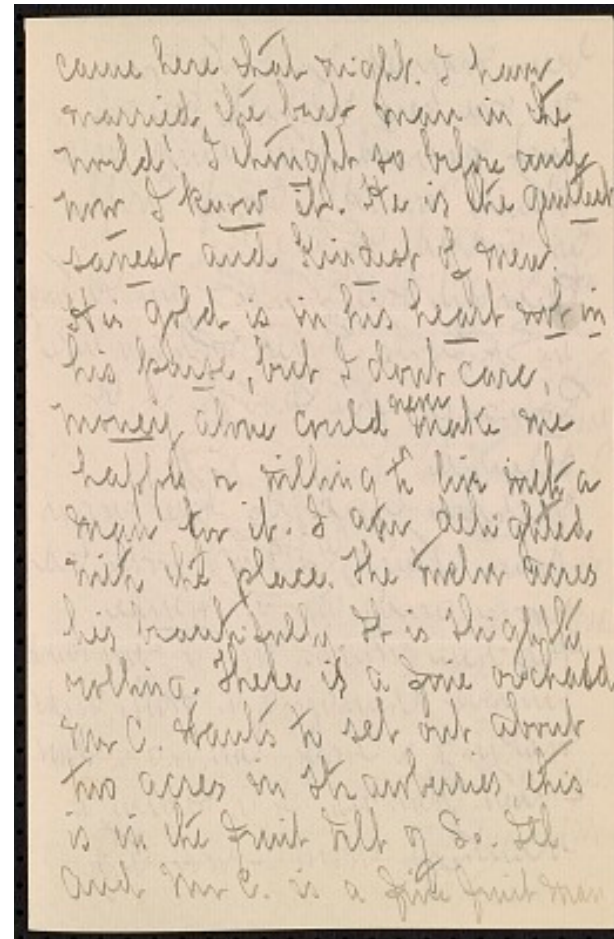 came here that night. I have
married the best man in the
world! I thought so before and
now I know it. He is the gentlest
sanest and kindest of men.
His gold is in his heart not in
his purse, but I don't care,
money alone could never make me
happy or willing to live with a
man for it. I am delighted
with the place. The twelve acres
lies beautifully It is slightly
rolling. There is a fine orchard
Mr C. wants to set out about
two acres in strawberries this
is in the fruit belt of So. Ill
and Mr C. is a fine fruit man